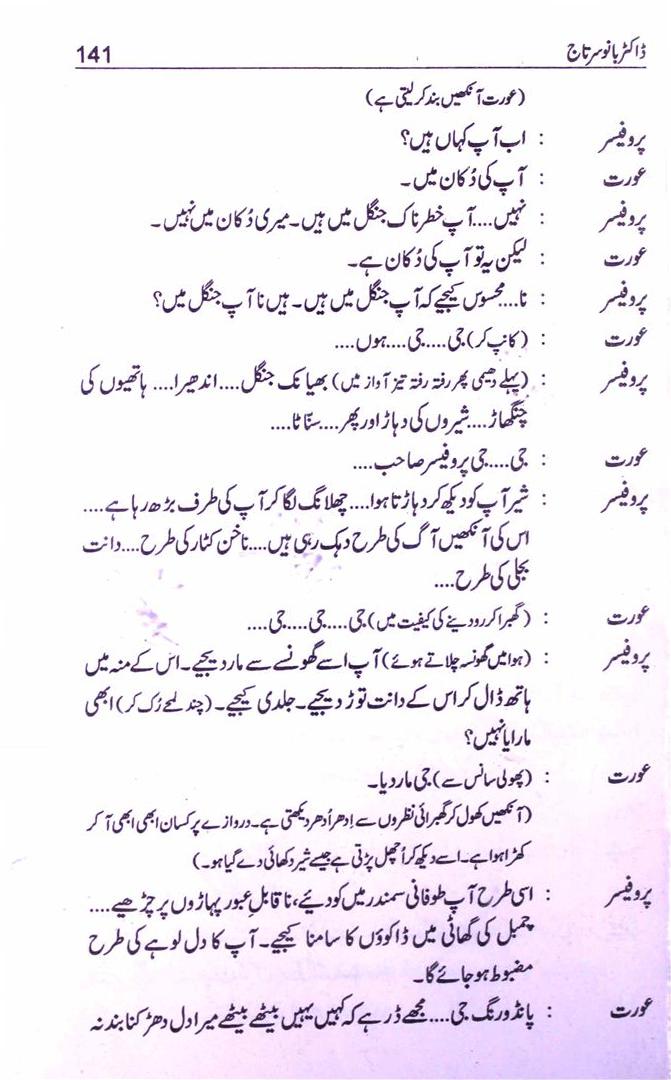 141 ڈاکٹر بانو سرتاج
(عورت آنکھیں بند کر لیتی ہے)
پروفیسر : اب آپ کہاں ہیں؟
عورت : آپ کی دُکان میں۔
پروفیسر : نہیں....آپ خطرناک جنگل میں ہیں۔ میری دُکان میں نہیں۔
عورت : لیکن یہ تو آپ کی دُکان ہے۔
پروفیسر : نا....محسوس کیجیے کہ آپ جنگل میں ہیں۔ ہیں نا آپ جنگل میں؟
عورت : (کانپ کر) جی....جی....ہوں....
پروفیسر : (پہلے دھیمی پھر رفتہ رفتہ تیز آواز میں) بھیانک جنگل....اندھیرا....ہاتھیوں کی
چنگھاڑ....شیروں کی دہاڑ اور پھر....سنّاٹا....
عورت : جی....جی پروفیسر صاحب....
پروفیسر : شیر آپ کو دیکھ کر دہاڑتا ہوا....چھلانگ لگا کر آپ کی طرف بڑھ رہا ہے....
اس کی آنکھیں آگ کی طرح دہک رہی ہیں....ناخن کٹار کی طرح....دانت
بجلی کی طرح....
عورت : (گھبرا کر رو دینے کی کیفیت میں) جی....جی....جی....
پروفیسر : (ہوا میں گھونسہ چلاتے ہوئے) آپ اسے گھونسے سے مار دیجیے۔ اس کے منہ میں
ہاتھ ڈال کر اس کے دانت توڑ دیجیے۔ جلدی کیجیے۔ (چند لمحے رُک کر) ابھی
مارا یا نہیں؟
عورت : (پھولی سانس سے) جی مار دیا۔
(آنکھیں کھول کر گھبرائی نظروں سے اِدھر اُدھر دیکھتی ہے۔ دروازے پر کسان ابھی ابھی آ کر
کھڑا ہوا ہے۔ اسے دیکھ کر اُچھل پڑتی ہے جیسے شیر دکھائی دے گیا ہو۔)
پروفیسر : اسی طرح آپ طوفانی سمندر میں کودیئے، ناقابلِ عبور پہاڑوں پر چڑھیے....
چمبل کی گھاٹی میں ڈاکوؤں کا سامنا کیجیے۔ آپ کا دل لوہے کی طرح
مضبوط ہو جائے گا۔
عورت : پانڈورنگ جی....مجھے ڈر ہے کہ کہیں یہیں بیٹھے بیٹھے میرا دل دھڑکنا بند نہ